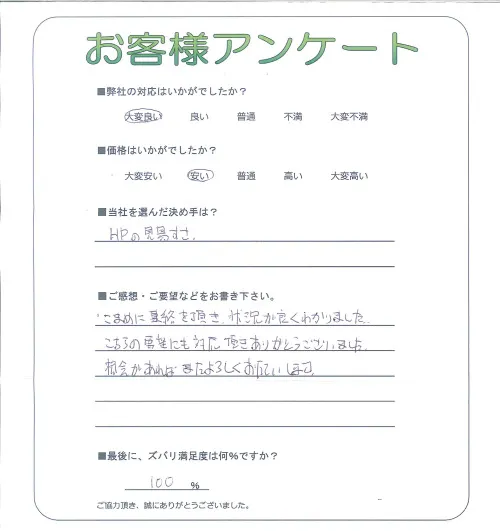 お客様アンケート
■弊社の対応はいかがでしたか？
大変良い 良い 普通 不満 大変不満
■価格はいかがでしたか？
大変安い 安い 普通 高い 大変高い
■当社を選んだ決め手は？
HPの見易すさ、
■ご感想・ご要望などをお書き下さい。
こまめに連絡を頂き、状況が良くわかりました。
こちらの要望にも対応頂きありがとうございました。
機会があればまたよろしくお願いします。
■最後に、ズバリ満足度は何％ですか？
100 ％
ご協力頂き、誠にありがとうございました。